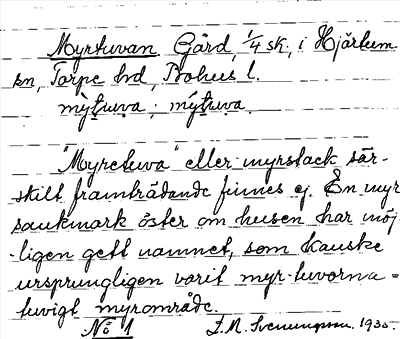 Myrtuvan Gård, 1/4 sk., i Hjärtum
sn, Torpe hd, Bohus l.
mỳtuva, mýtuva.
"Myretuva" eller myrstack sär-
skilt framträdande finnes ej. En myr
sankmark öster om husen har möj-
ligen gett namnet, som kanske
ursprungligen varit myr-tuvorna =
tuvigt myrområde.
No 1 1930.